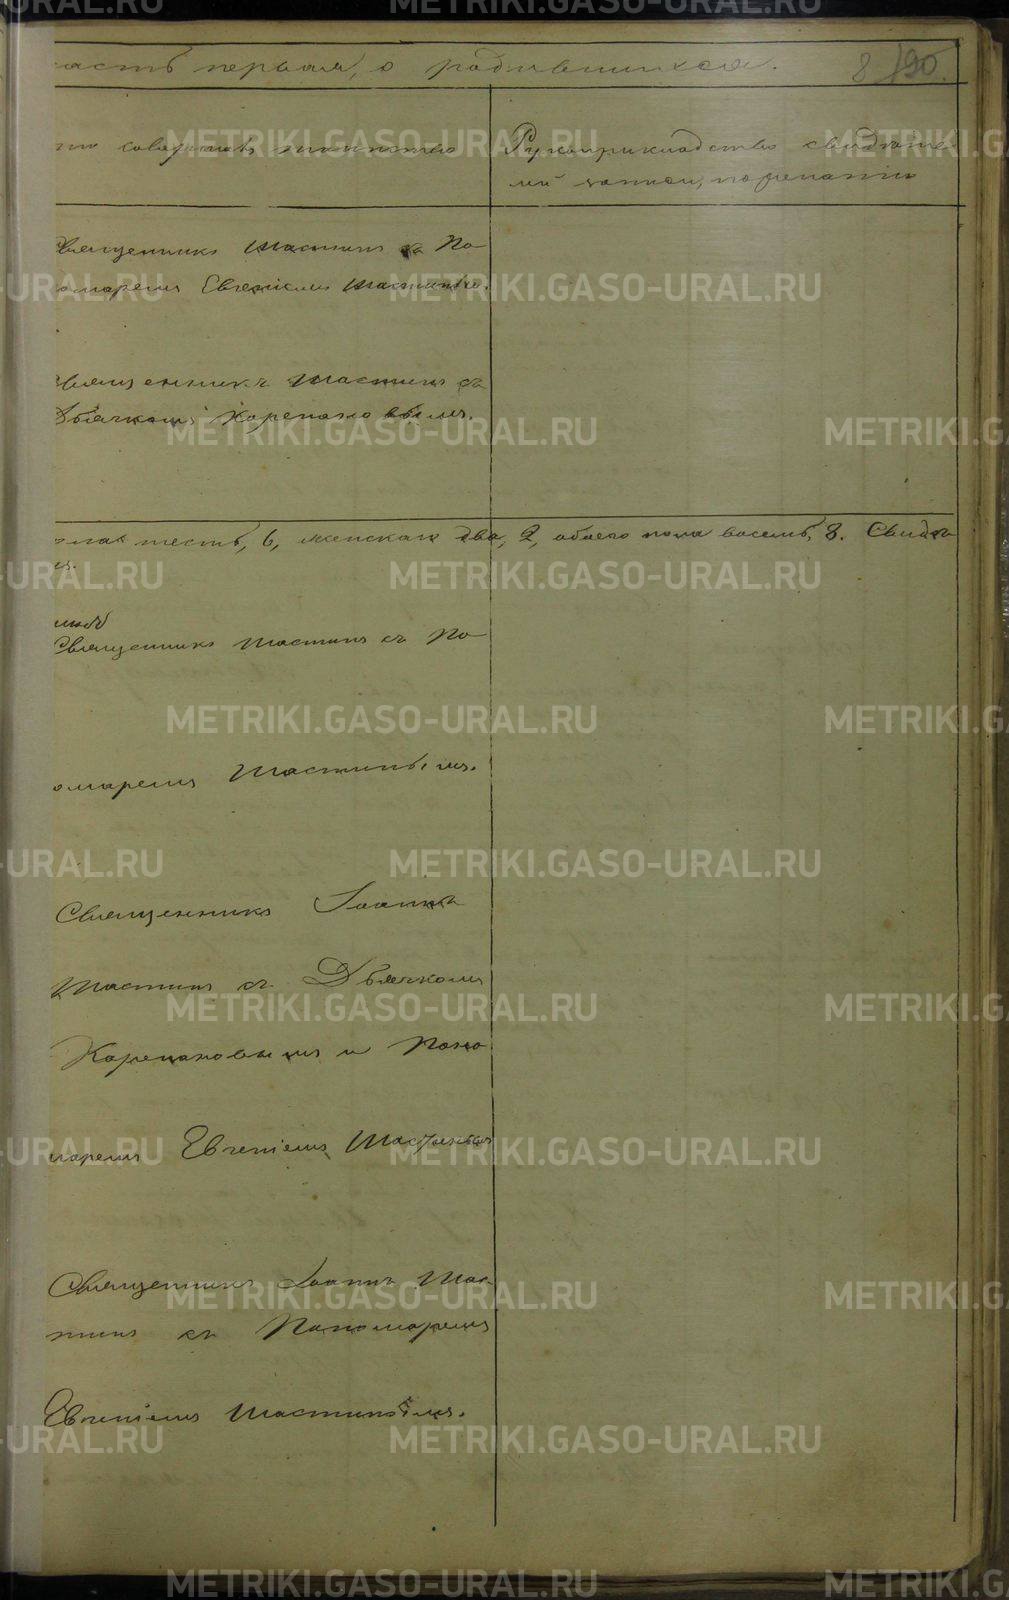 асть первая, о родившихся. 8/90
то совершалъ таинство
Рукоприкладство свидѣте-
лей записи, по желанію
Священникъ Шастинъ съ По
омаремъ Евгеніемъ Шастинымъ.
Священникъ Шастинъ съ
Дьячкомъ Карепановымъ.
шесть, 6, женскаго два, 2, обоего пола восемь, 8. Свидѣ
Священникъ Шастинъ съ По
омаремъ Шастинымъ.
Священникъ Іоаннъ
Шастинъ съ Дьячкомъ
Карепановымъ и Поно
маремъ Евгеніемъ Шастинымъ
Священникъ Іоаннъ Шас-
тинъ съ Пономаремъ
Евгеніемъ Шастинымъ.
METRIKI.GASO-URAL.RU